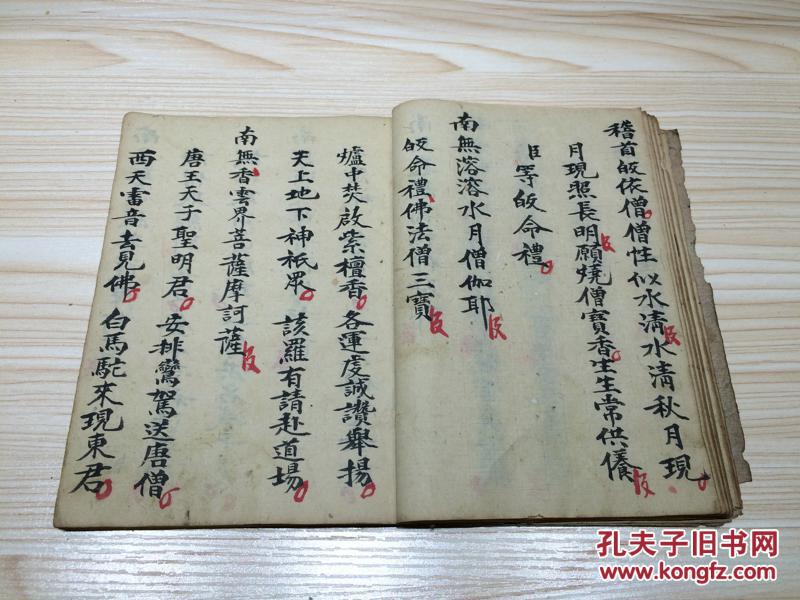 稽首皈依僧僧性似水清水清秋月現
月現照長明願燒僧寶香生生常供養
臣等皈命禮
南無溶溶水月僧伽耶
皈命禮佛法僧三寶
爐中焚啟紫檀香各運虔誠讚舉揚
天上地下神祇眾該羅有請赴道場
南無香雲界菩薩摩訶薩
唐王天子聖明君安排鸞駕送唐僧
西天雷音去見佛白馬駝來現東君
孔夫子旧书网
www.kongfz.com